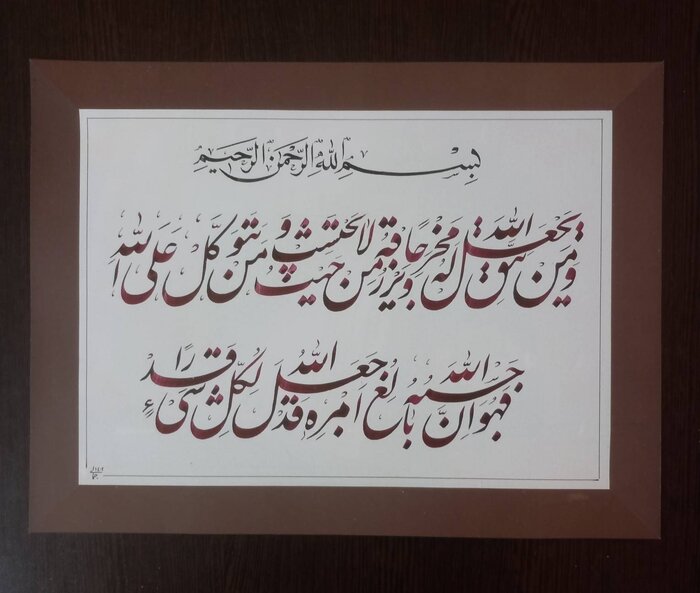 بِسْمِ اللهِ الرَّحْمنِ الرَّحیمِ
وَمَن یَتَّقِ اللهَ یَجْعَل لَهُ مَخْرَجًا وَیَرْزُقْهُ مِنْ حَیْثُ لَا یَحْتَسِبُ وَ مَنْ یَتَوَکَّلْ عَلَی اللهِ
فَهُوَ حَسْبُهُ اِنَّ اللهَ بَالِغُ اَمْرِهِ قَدْ جَعَلَ اللهُ لِکُلِّ شَیْءٍ قَدْرًا